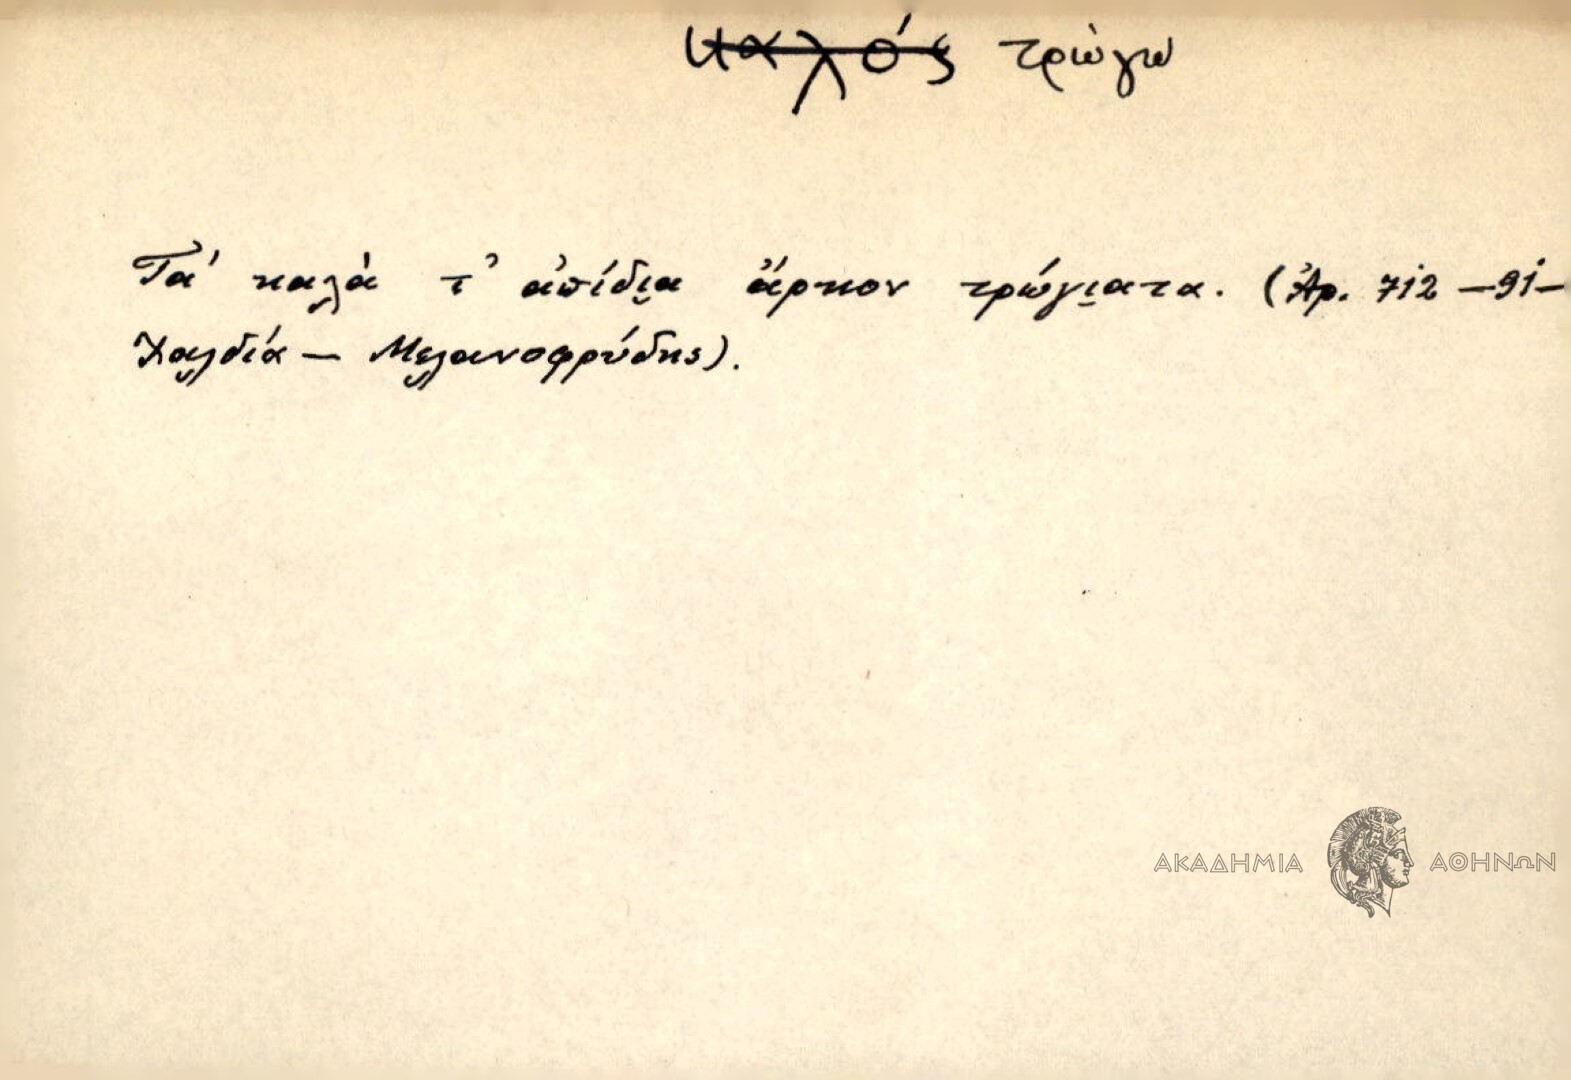 ~~καλός~~ τρώγω
Τά καλὰ τ' ἀπίδι̭α ἄρκον τρώγι̭ατα. (Ἀρ. 712 –91–
Χαλδία – Μελανοφρύδης).
ΑΚΑΔΗΜΙΑ ΑΘΗΝΩΝ